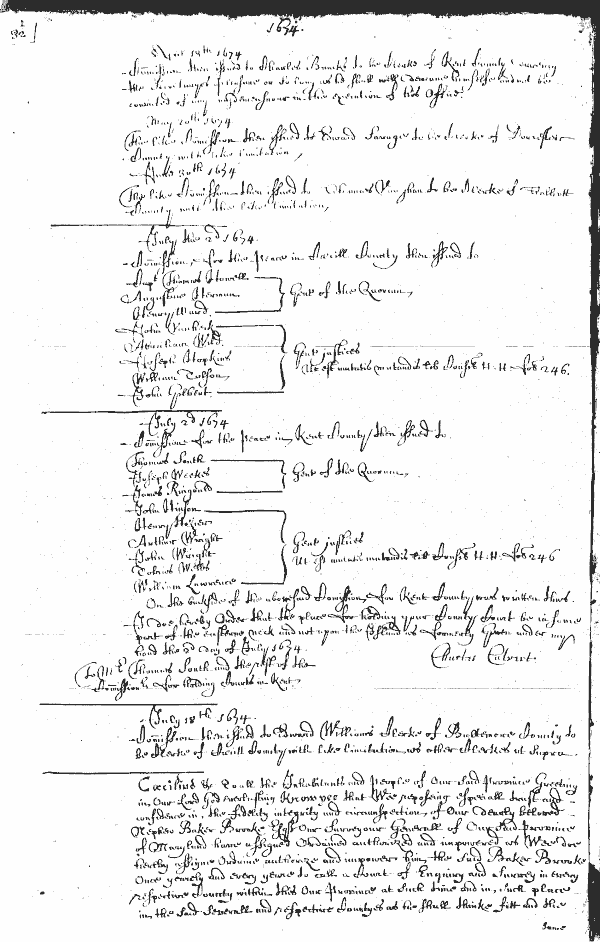 1674.
April 18th 1674
Comission then issued to Charles Bankes to be Clerke of Kent County
the Secretaryes pleasure or so long as he shall well demeane himselfe and not be
convicted of any misdemeanour in the execution of his Office.
May 20th 1674
The like Comission then issued to Edward Savage to be Clerke of Dorchester
County with like limitation,
June 30th 1674
The like Comission then issued to Thomas Vaughan to be Clerke of Talbott
County with the like limitation,
July the 2d 1674.
Comission for the Peace in Cecill County then issued to
Capt Thomas Howell
Augustine Herman
Henry Ward
Gent of the Quorum,
John Vanheck
Abraham Wild
Joseph Hopkins
William Tolson
John Gilbert
Gent justices
Ut est mutatis mutandis lib Counsell H. H. fol 246.
July 2d 1674
Comission for the Peace in Kent County then issued to
Thomas South
Joseph Weekes
James Ringould
Gent of the Quorum,
John Hinson
Henry Hosier
Arthur Wright
John Wright
Tobias Wells
William Lawrence
Gent justices
Ut est mutatis mutandis lib Counsell H. H. fol 246
On the backside of the abovesaid Comission for Kent County was written thus.
I doe hereby Order that the place for holding your County Court be in some
part of the easterne neck and not upon the Island as formerly Given under my
hand the 2d day of July 1674.
Charles Calvert.
To Mr Thomas South and the rest of the
Comissionrs for holding Courts in Kent
July 18th 1674.
Comission then issued to Edward Williams Clerke of Baltemore County to
be Clerke of Cecill County with like limitation as other Clerkes ut supra.
Cæcilius &c To all the Inhabitants and People of Our said Province Greeting
in Our Lord God everlasting Knowyee that Wee reposing especiall trust and
confidence in the fidelity integrity and circumspection of Our dearly beloved
Nephew Baker Brooke Esqr Our Surveyour Generall of Our said Province
of Maryland have assigned Ordained authorized and impowered as Wee doe
hereby assigne Ordaine authorize and impower him the said Baker Brooke
Once yearely and every yeare to call a Court of Enquiry and Survey in every
respective County within this Our Province at such time and in such place
in the said severall and respective Countyes as he shall thinke fitt and the
same